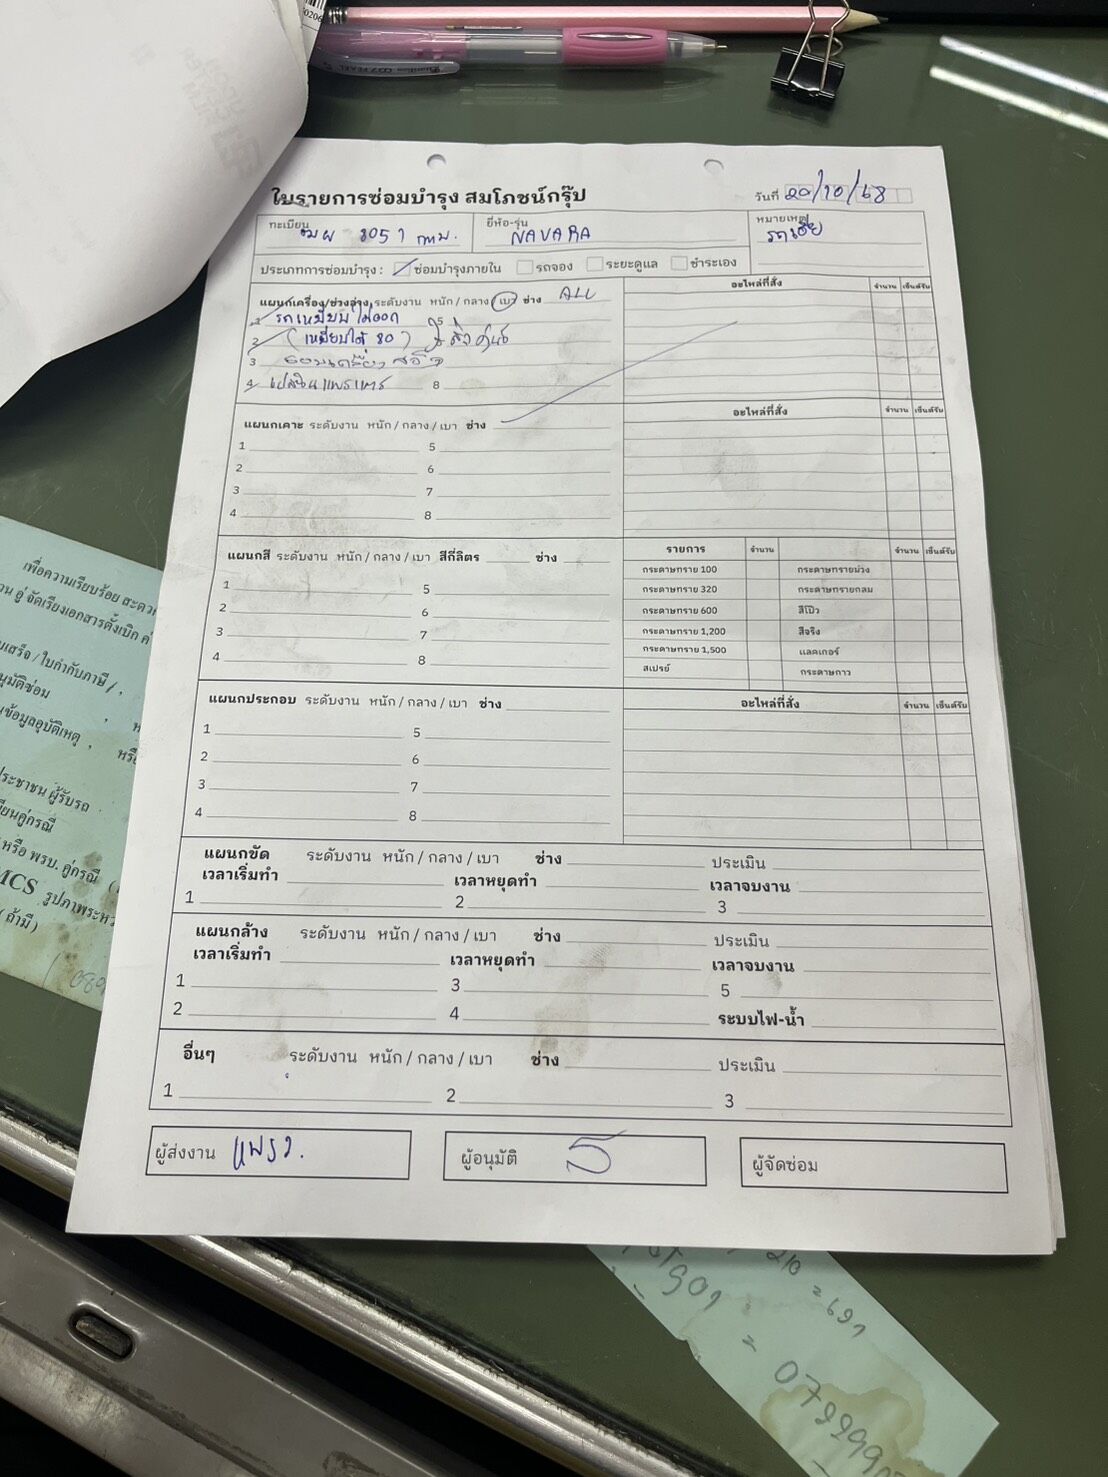 ใบรายการซ่อมบำรุง สมโภชน์กรุ๊ป
วันที่ 20/10/68
ทะเบียน 8057 กทม.
ยี่ห้อ-รุ่น NAVARA
หมายเหตุ
ประเภทการซ่อมบำรุง : ซ่อมบำรุงภายใน รถจอง ระยะดูแล ชำระเอง
แผนกเครื่อง/ช่วงล่าง ระดับงาน หนัก / กลาง / เบา ช่าง ALL
อะไหล่ที่สั่ง จำนวน เซ็นต์รับ
1 รถเหยียบไม่ออก 5
2 (เหยียบได้ 80)
3
4 8
แผนกเคาะ ระดับงาน หนัก / กลาง / เบา ช่าง
อะไหล่ที่สั่ง จำนวน เซ็นต์รับ
1 5
2 6
3 7
4 8
แผนกสี ระดับงาน หนัก / กลาง / เบา สีกี่ลิตร ช่าง
รายการ จำนวน จำนวน เซ็นต์รับ
1 5
2 6
3 7
4 8
กระดาษทราย 100 กระดาษทรายม่วง
กระดาษทราย 320 กระดาษทรายกลม
กระดาษทราย 600 สีโป๊ว
กระดาษทราย 1,200 สีจริง
กระดาษทราย 1,500 แลคเกอร์
สเปรย์ กระดาษกาว
แผนกประกอบ ระดับงาน หนัก / กลาง / เบา ช่าง
อะไหล่ที่สั่ง จำนวน เซ็นต์รับ
1 5
2 6
3 7
4 8
แผนกขัด ระดับงาน หนัก / กลาง / เบา ช่าง ประเมิน
เวลาเริ่มทำ เวลาหยุดทำ เวลาจบงาน
1 2 3
แผนกล้าง ระดับงาน หนัก / กลาง / เบา ช่าง ประเมิน
เวลาเริ่มทำ เวลาหยุดทำ เวลาจบงาน
1 3 5
2 4 ระบบไฟ-น้ำ
อื่นๆ ระดับงาน หนัก / กลาง / เบา ช่าง ประเมิน
1 2 3
ผู้ส่งงาน
ผู้อนุมัติ
ผู้จัดซ่อม
เพื่อความเรียบร้อย
อู่ จัดเรียงเอกสารตั้งเบิก
ใบกำกับภาษี
ข้อมูลอุบัติเหตุ , หรือ
ประชาชน ผู้รับรถ
หรือ พรบ. คู่กรณี
MCS
(ถ้ามี)